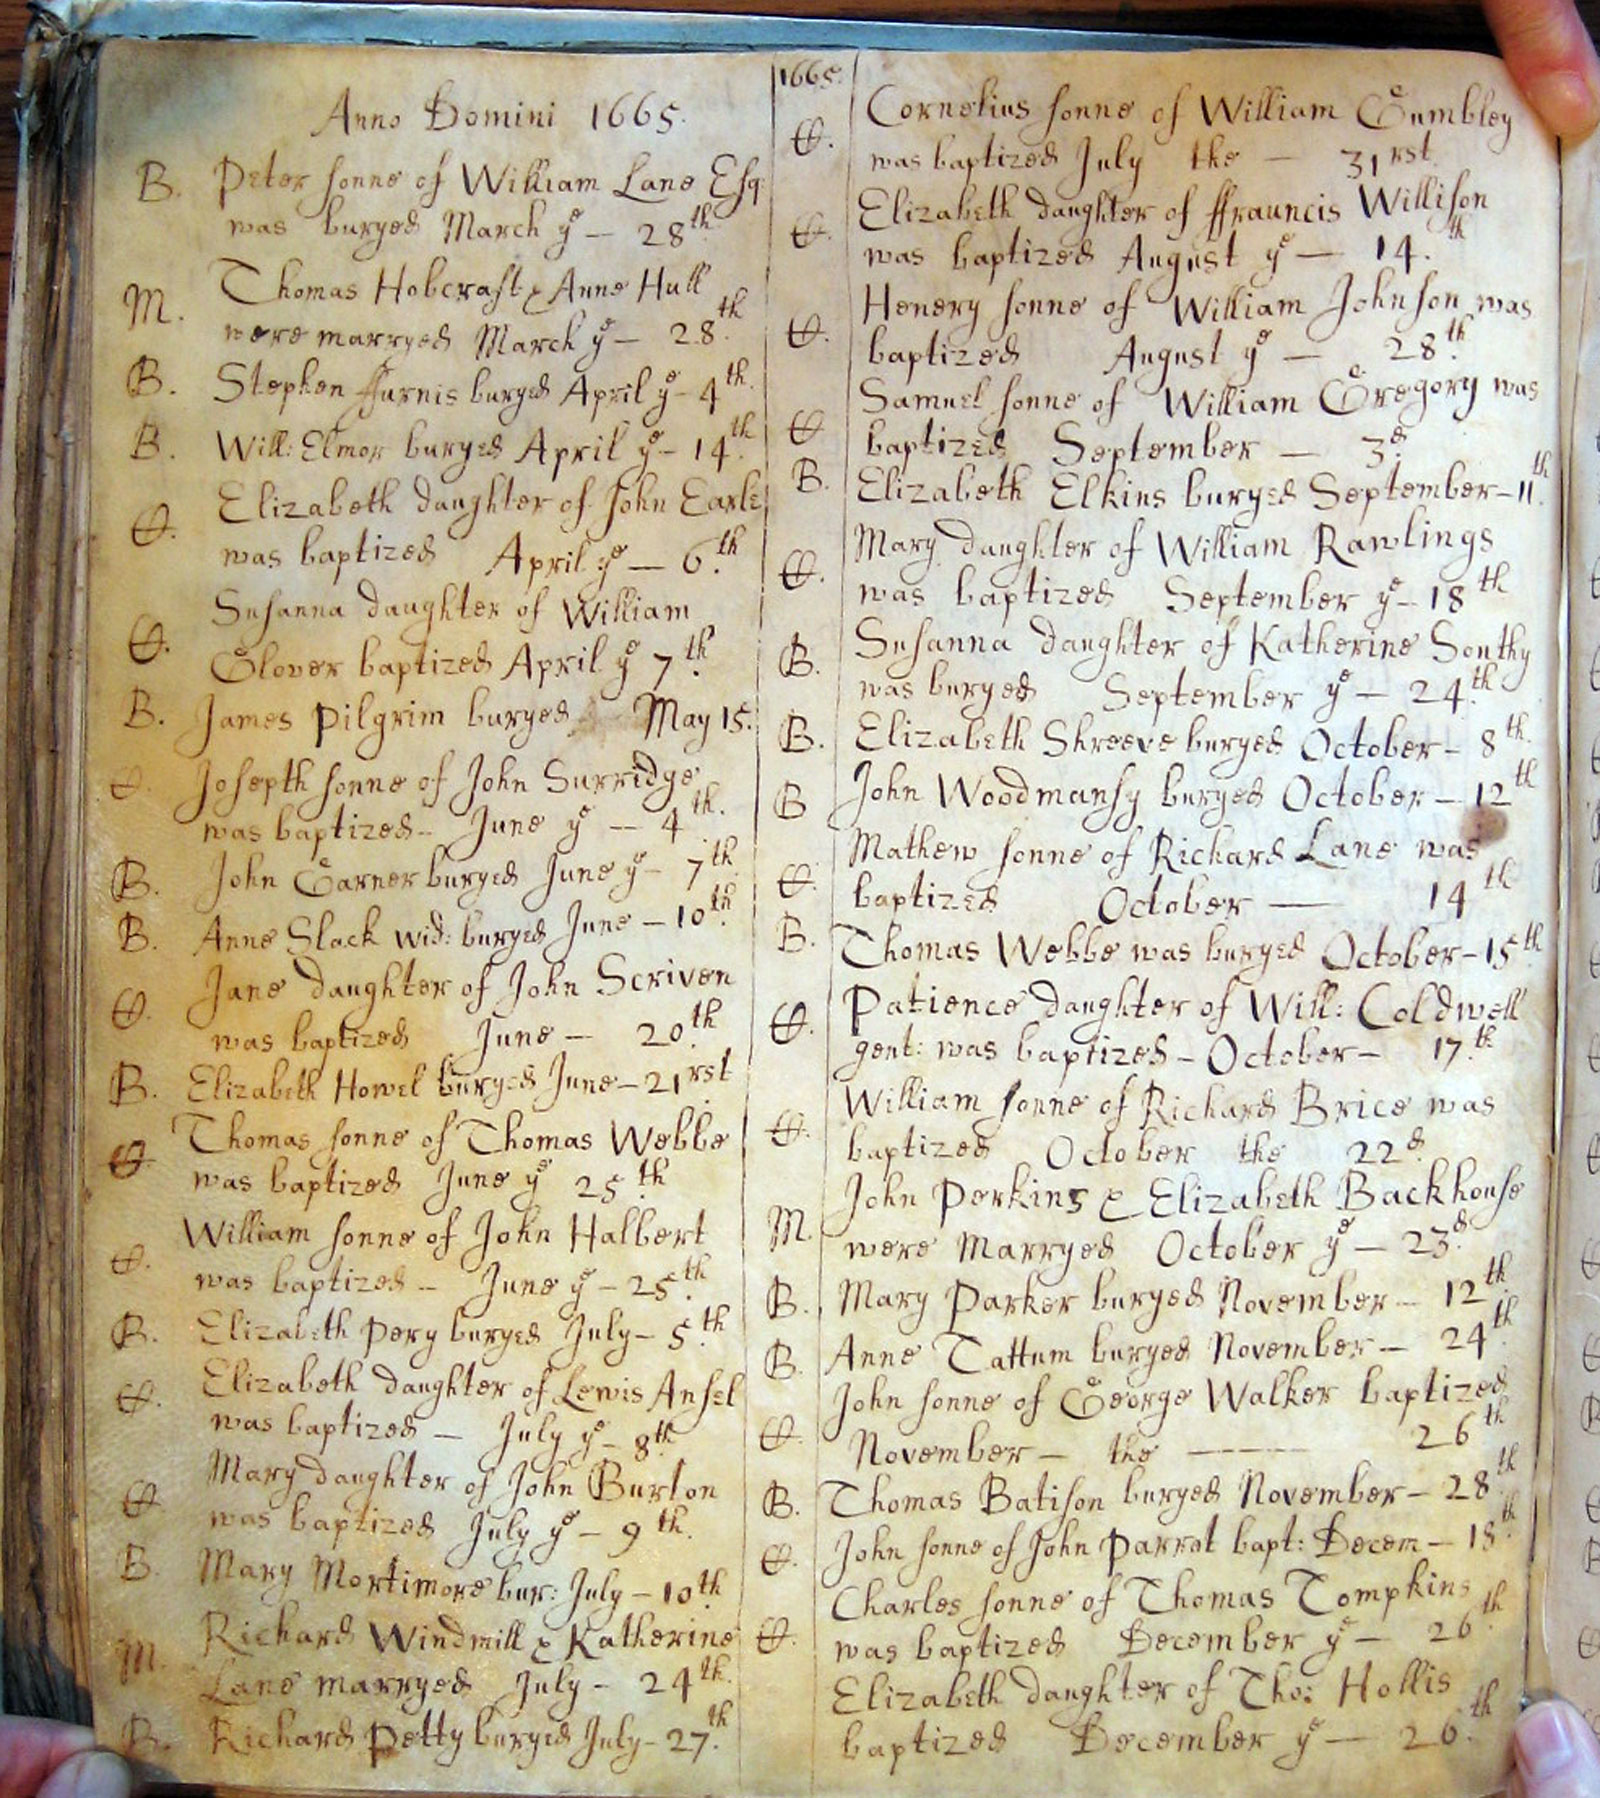 Anno Domini 1665.
B. Peter sonne of William Lane Esq:
was buryed March yͤ — 28th.
M. Thomas Hobcraft & Anne Hull
were marryed March yͤ — 28th.
B. Stephen ffurnis buryed April yͤ - 4th.
B. Will: Elmor buryed April yͤ - 14th.
C. Elizabeth daughter of John Earle
was baptized April yͤ — 6.th
C. Susanna daughter of William
Glover baptized April yͤ 7.th
B. James Pilgrim buryed May 15.
C. Josepth sonne of John Surridge
was baptized — June yͤ — 4th.
B. John Garner buryed June yͤ - 7th.
B. Anne Slack wid: buryed June — 10th.
C. Jane daughter of John Scriven
was baptized June — 20.th
B. Elizabeth Howel buryed June — 21rst
C. Thomas sonne of Thomas Webbe
was baptized June yͤ 25.th
C. William sonne of John Halbert
was baptized — June yͤ — 25.th
B. Elizabeth Pery buryed July — 5.th
C. Elizabeth daughter of Lewis Ansel
was baptized — July yͤ - 8th
C. Mary daughter of John Burton
was baptized July yͤ — 9th.
B. Mary Mortimore bur: July — 10th
M. Richard Windmill & Katherine
Lane marryed July - 24th.
B. Richard Petty buryed July - 27.th
1665.
C. Cornelius sonne of William Gumbley
was baptized July the — 31rst.
C. Elizabeth daughter of ffrauncis Willison
was baptized August yͤ — 14.th
C. Henery sonne of William Johnson was
baptized August yͤ — 28.th
C. Samuel sonne of William Gregory was
baptized September — 3.d
B. Elizabeth Elkins buryed September — 11.th
C. Mary daughter of William Rawlings
was baptized September yͤ — 18th
B. Susanna daughter of Katherine Southy
was buryed September yͤ — 24.th
B. Elizabeth Shreeve buryed October — 8th.
B John Woodmansy buryed October — 12th
C. Mathew sonne of Richard Lane was
baptized October — 14th
B. Thomas Webbe was buryed October — 15th
C. Patience daughter of Will: Coldwell
gent: was baptized — October — 17.th
C. William sonne of Richard Brice was
baptized October the 22.d
M. John Perkins & Elizabeth Backhouse
were Marryed October yͤ — 23.d
B. Mary Parker buryed November — 12th.
B. Anne Tattum buryed November — 24th.
C. John sonne of George Walker baptized
November — the — 26th
B. Thomas Batison buryed November — 28th.
C. John sonne of John Parrat bapt: Decem — 18.th
C. Charles sonne of Thomas Tompkins
was baptized December yͤ — 26th.
Elizabeth daughter of Tho: Hollis
baptized December yͤ — 26.th